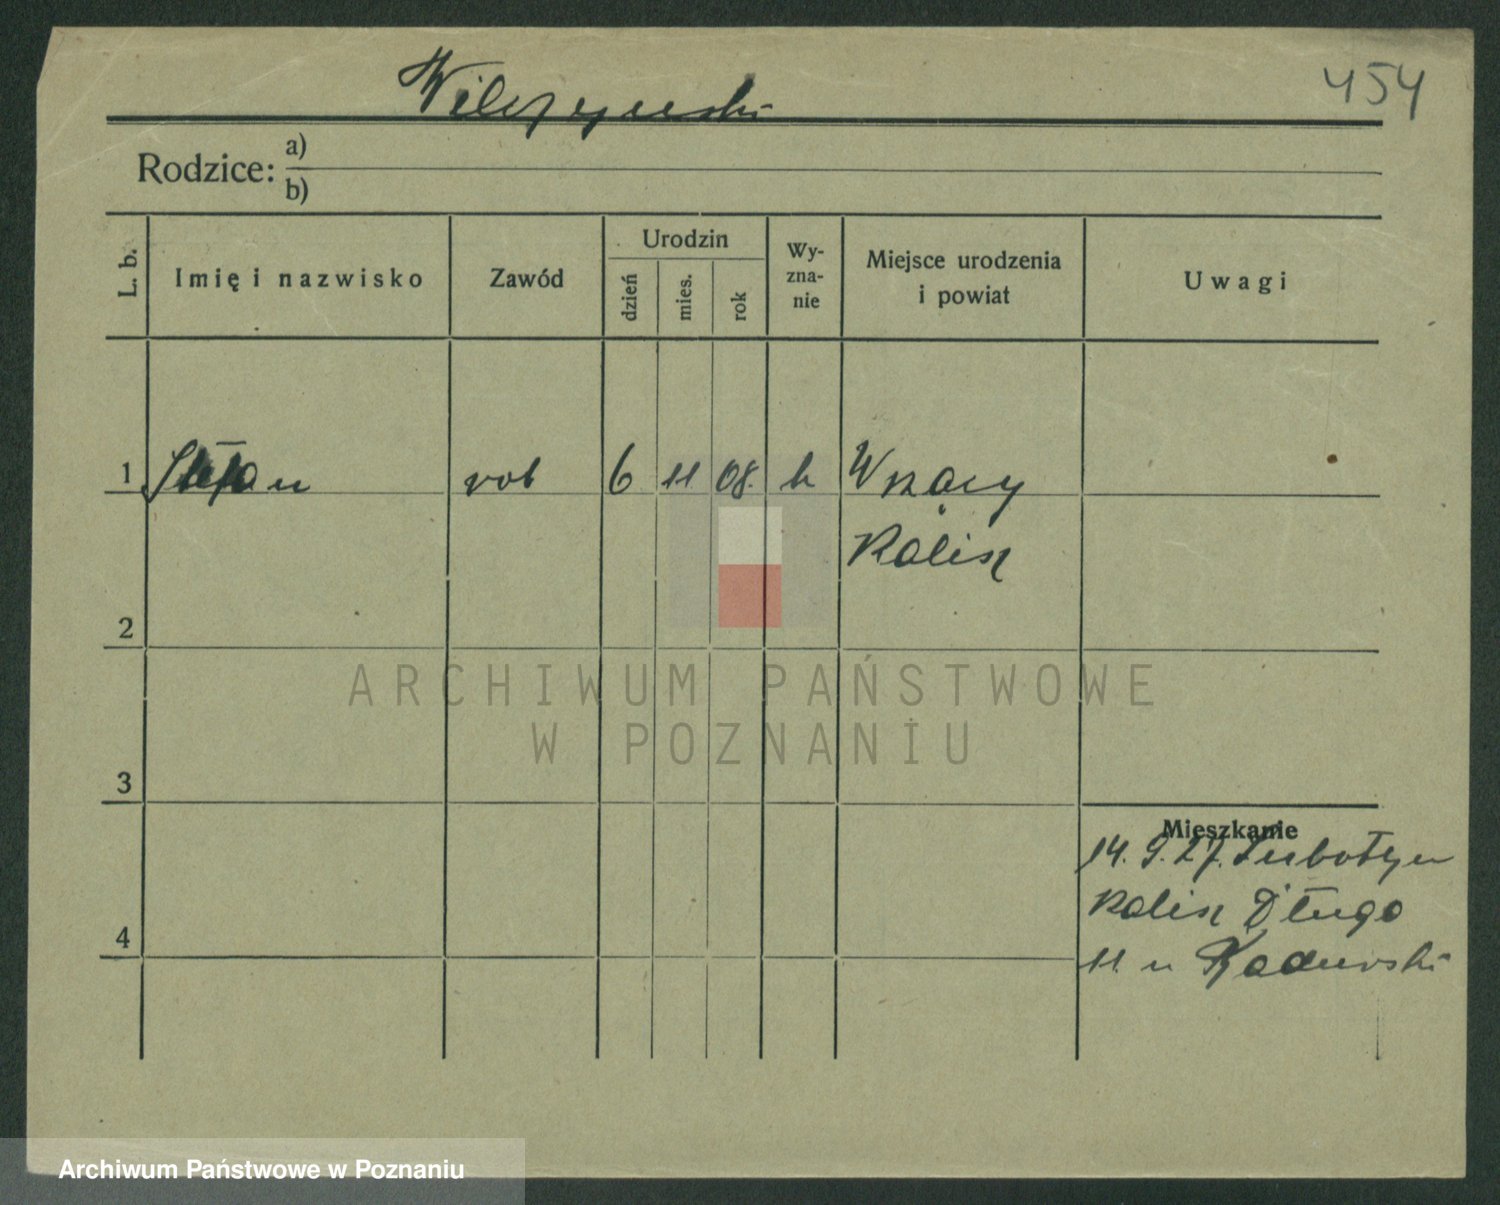 454
Wilczynski
Rodzice: a)
b)
L. b. Imię i nazwisko Zawód Urodzin dzień mies. rok Wy-zna-nie Miejsce urodzenia i powiat Uwagi
1 Stefan rob 6 11 08. k
Kalisz
2
ARCHIWUM PAŃSTWOWE
W POZNANIU
3
Mieszkanie
14. 9. 27.
Kalisz Długa
4
11 u
Archiwum Państwowe w Poznaniu